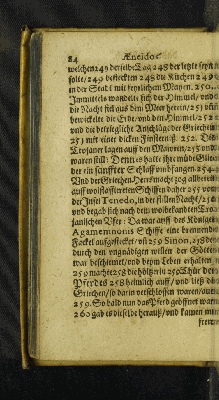 84 Æneidos
welchen 249 derselbe Tag 248 der letzte seyn
solte / 249 besteckten 248 die Kirchen 249
in der Stadt mit feyrlichem Mayen. 250.
Immittels wandelte sich der Himmel / und
die Nacht fiel aus dem Meer herein / 251 und
bewickelte die Erde / und den Himmel / 252
und die betriegliche Anschläge der Griechen
251 mit einer dicken Finsterniß. 252 Die
Trojaner lagen auff den Mauren / 253 und
waren still: Denn es hatte ihre müde Glieder
der ein fünffter Schlaff umbfangen. 254
Und der Griechen Heer und zog allbereit
auff wolstaffierten Schiffen daher 255 von
der Insel Tenedo, in der stillen Nacht / 256
und begab sich nach dem wolbekandten Tro-
janischen Ufer: Da war auff des Königes
Agamemnonis Schiffe eine brennende
Fackel auffgesteckt / un 259 Sinon, 258 der
durch den ungnädigen willen der Götter
war beschirmet / und beym Leben erhalten,
259 machte 258 die höltzerin 250 Thür des
Pferdes 258 heimlich auff / und ließ die
Griechen / so darin verschlossen waren / auß
259. So bald nun das Pferd geöffnet war
260 gab es dieselbe herauß / und kamen mit